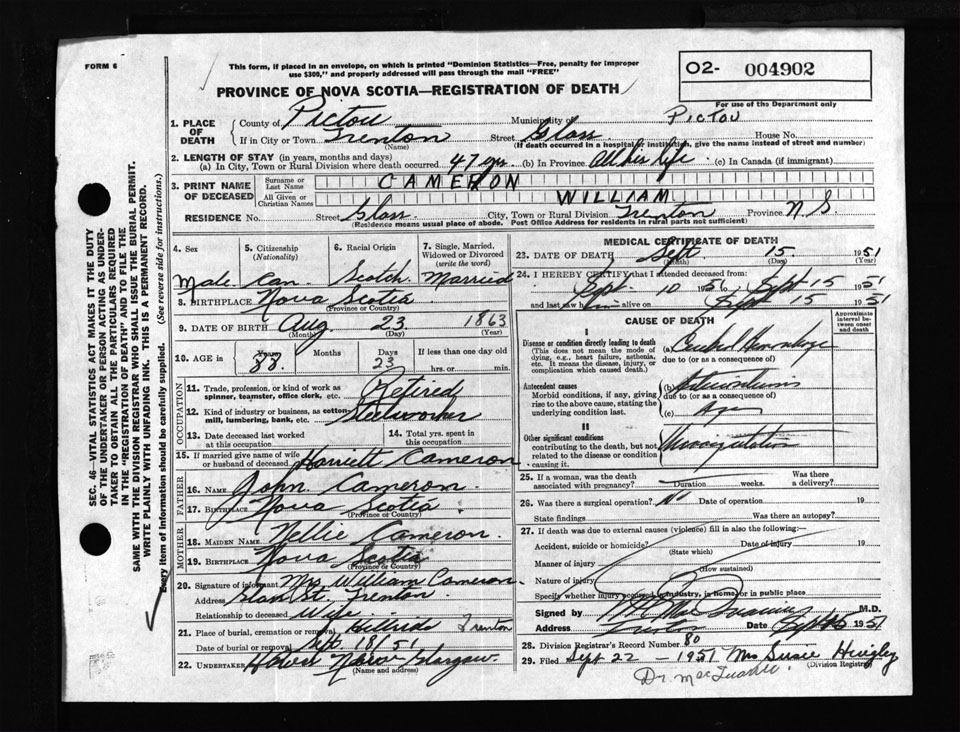 FORM 6
This form, if placed in an envelope, on which is printed "Dominion Statistics—Free, penalty for improper
use $300," and properly addressed will pass through the mail "FREE"
O2- 004902
PROVINCE OF NOVA SCOTIA—REGISTRATION OF DEATH
For use of the Department only
1. PLACE OF DEATH
County of Pictou Municipality of PICTOU
If in City or Town Trenton Street Glass House No.
(Name) (If death occurred in a hospital or institution, give the name instead of street and number)
2. LENGTH OF STAY (in years, months and days)
(a) In City, Town or Rural Division where death occurred 47 yrs (b) In Province All his life (c) In Canada (if immigrant)
3. PRINT NAME OF DECEASED
Surname or Last Name CAMERON
All Given or Christian Names WILLIAM
RESIDENCE No. Street Glass City, Town or Rural Division Trenton Province N.S.
(Residence means usual place of abode. Post Office Address for residents in rural parts not sufficient)
4. Sex 5. Citizenship (Nationality) 6. Racial Origin 7. Single, Married, Widowed or Divorced (write the word)
Male. Can. Scotch. Married
8. BIRTHPLACE Nova Scotia
(Province or Country)
9. DATE OF BIRTH Aug 23 1863
(Month) (Day) (Year)
10. AGE in Years Months Days If less than one day old
88. 23 hrs. or min.
OCCUPATION
11. Trade, profession, or kind of work as spinner, teamster, office clerk, etc. Retired
12. Kind of industry or business, as cotton-mill, lumbering, bank, etc. Steelworker
13. Date deceased last worked at this occupation 14. Total yrs. spent in this occupation
15. If married give name of wife or husband of deceased Harriett Cameron
FATHER
16. NAME John Cameron.
17. BIRTHPLACE Nova Scotia
(Province or Country)
MOTHER
18. MAIDEN NAME Nellie Cameron.
19. BIRTHPLACE Nova Scotia
(Province or Country)
20. Signature of informant Mrs William Cameron.
Address Glass St. Trenton
Relationship to deceased Wife
21. Place of burial, cremation or removal Hillside Trenton
Date of burial or removal Sept. 18/51
22. UNDERTAKER New Glasgow.
(Name and address)
MEDICAL CERTIFICATE OF DEATH
23. DATE OF DEATH Sept. 15 1951
(Month) (Day)
24. I HEREBY CERTIFY that I attended deceased from:
Sept. 10 1951 to Sept 15 1951
and last saw him alive on Sept 15 1951
CAUSE OF DEATH
Approximate interval between onset and death
I
Disease or condition directly leading to death (a) Cerebral Hemorrhage
(This does not mean the mode of dying, e.g., heart failure, asthenia, etc. It means the disease, injury, or complication which caused death.)
due to (or as a consequence of)
Antecedent causes (b)
Morbid conditions, if any, giving rise to the above cause, stating the underlying condition last.
due to (or as a consequence of)
(c) Age
II
Other significant conditions
contributing to the death, but not related to the disease or condition causing it.
25. If a woman, was the death associated with pregnancy? Duration weeks. Was there a delivery?
26. Was there a surgical operation? No Date of operation 19
State findings Was there an autopsy?
27. If death was due to external causes (violence) fill in also the following:—
Accident, suicide or homicide? Date of injury 19
(State which)
Manner of injury
(How sustained)
Nature of injury
Specify whether injury occurred in industry, in home or in public place
Signed by M.D.
Address Trenton Date Sept 1951
28. Division Registrar's Record Number 80
29. Filed Sept 22 - 1951 Mrs Susie
(Division Registrar)
SEC. 46—VITAL STATISTICS ACT MAKES IT THE DUTY
OF THE UNDERTAKER OR PERSON ACTING AS UNDER-
TAKER TO OBTAIN ALL THE PARTICULARS REQUIRED
IN THE "REGISTRATION OF DEATH" AND TO FILE THE
SAME WITH THE DIVISION REGISTRAR WHO SHALL ISSUE THE BURIAL PERMIT.
WRITE PLAINLY WITH UNFADING INK. THIS IS A PERMANENT RECORD.
Every item of information should be carefully supplied. (See reverse side for instructions.)